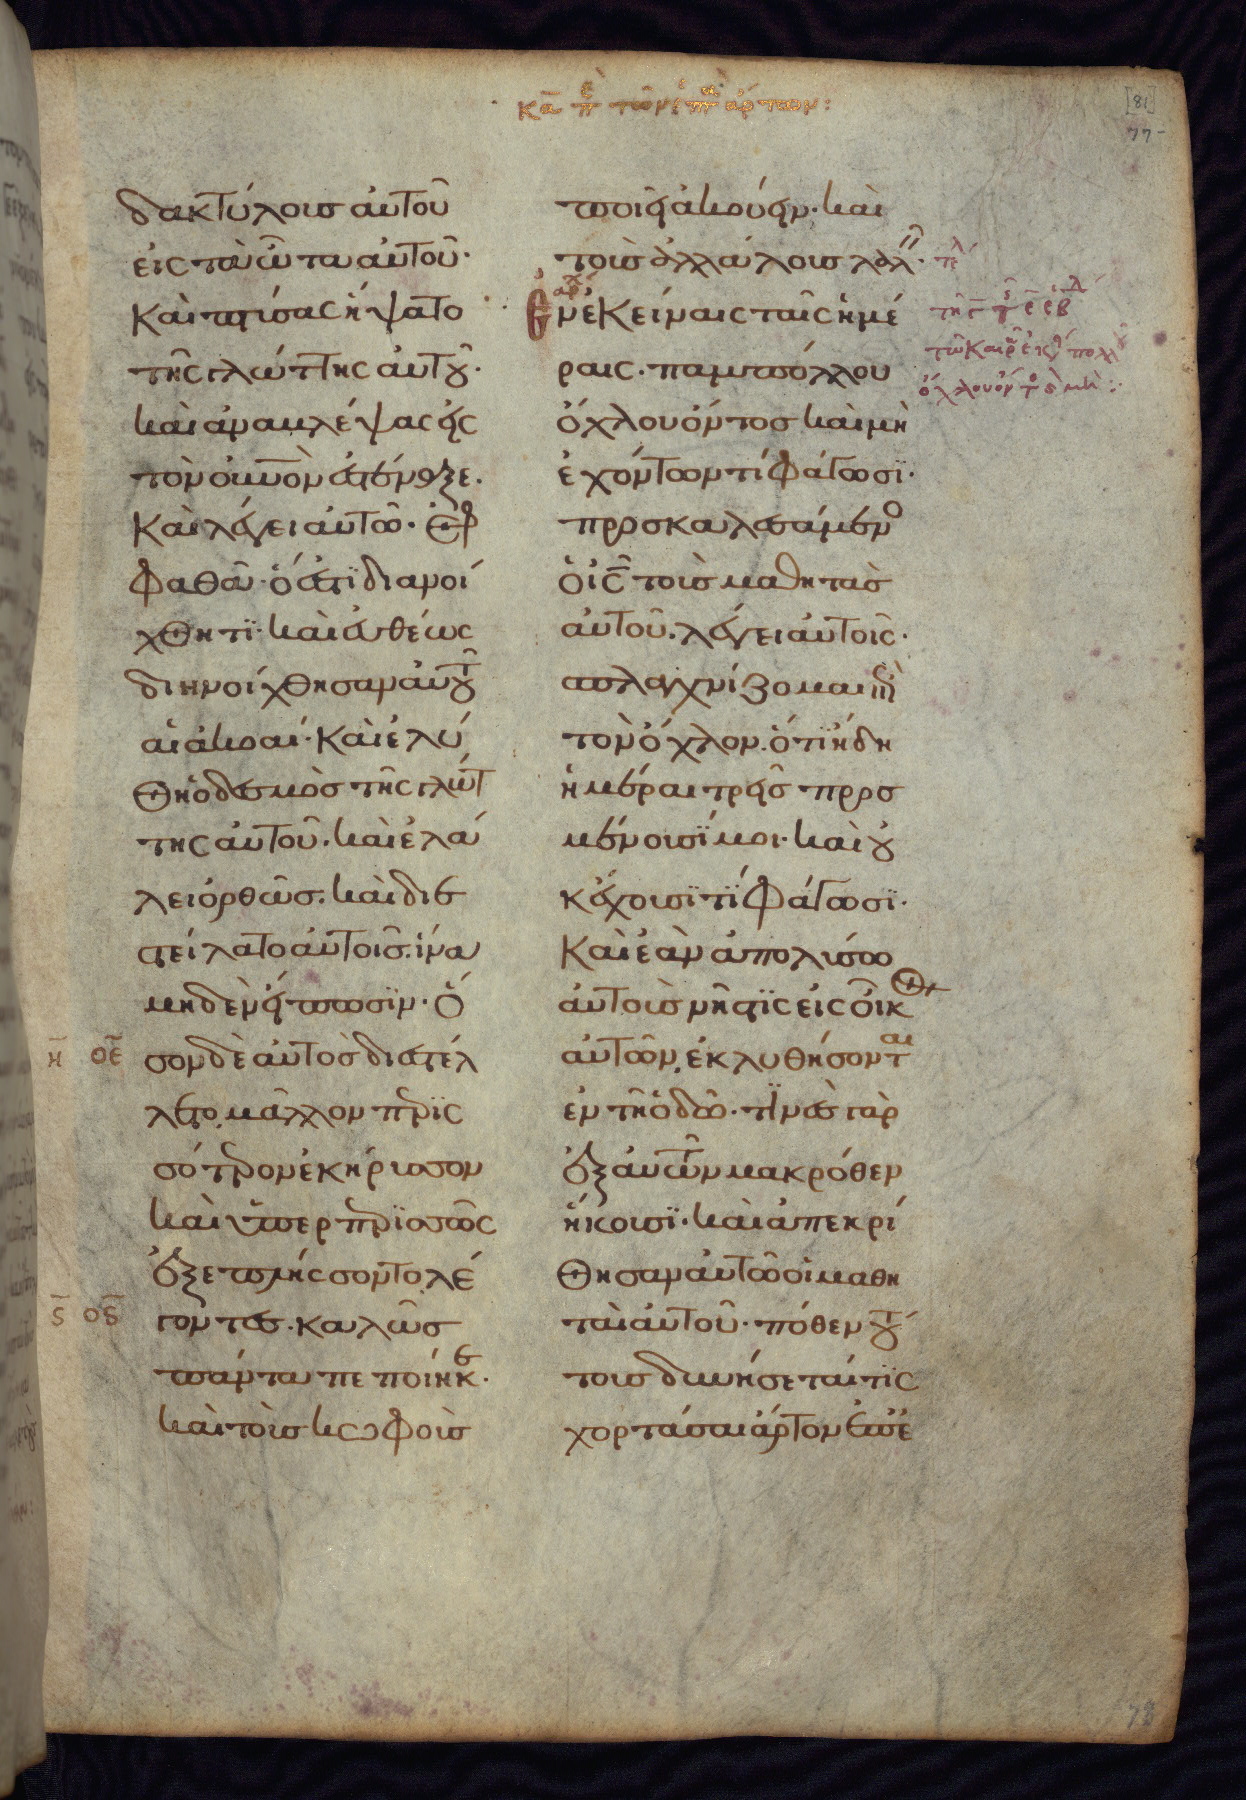 κα πε των ζ αρτων:
[81]
77
δακτύλοις αὐτοῦ
εἰς τὰ ὦτα αὐτοῦ·
Καὶ πτύσας ἥψατο
τῆς γλώττης αὐτοῦ·
καὶ ἀναβλέψας εἰς
τὸν οὐνὸν ἐστέναξε·
Καὶ λέγει αὐτῶ· ἐφ
φαθᾶ· ὅ ἐστϊ διανοί
χθητϊ· καὶ εὐθέως
διηνοίχθησαν αὐτοῦ
αἱ ἀκοαί· Καὶ ἐλύ
θη ὁ δεσμὸς τῆς γλώτ
της αὐτοῦ· καὶ ἐλά
λει ὀρθῶς· καὶ διε
στείλατο αὐτοῖς· ἵνα
μηδενὶ εἴπωσϊν· ὅ
η οε σον δὲ αὐτὸς διεστέλ
λετο, μᾶλλον περισ
σότερον ἐκήρυσσον
καὶ ὑπερπερισσῶς
ἐξεπλήσσοντο λέ
ϛ οϛ γοντες· καλῶς
πάντα πεποίηκε·
καὶ τοὺς κωφοὺς
ποιεῖ ἀκούειν· καὶ
τοὺς ἀλάλους λαλ·
Ἐν ἐκείναις ταῖς ἡμέ
ραις· παμπόλλου
ὄχλου ὄντος καὶ μὴ
ἐχόντων τί φάγωσϊ·
προσκαλεσάμενο
ὁ ις τοὺς μαθητὰς
αὐτοῦ· λέγει αὐτοῖς·
σπλαγχνίζομαι ἐπὶ
τὸν ὄχλον· ὅτι ἤδη
ἡμέραι τρεῖς προσ
μένουσϊ μοι· καὶ οὐ
κ ἔχουσϊ τί φάγωσϊ·
Καὶ ἐὰν ἀπολύσω
αὐτοὺς νήστϊς εἰς οἶκ
αὐτῶν, ἐκλυθήσονται
ἐν τῆ ὁδῶ· τϊνὲς γὰρ
ἐξ αὐτῶν μακρόθεν
ἥκουσϊ· καὶ ἀπεκρί
θησαν αὐτῶ οἱ μαθη
ταὶ αὐτοῦ· πόθεν τού
τους δυνήσεταί τϊς
χορτάσαι ἄρτον ἐπ ἐ
78